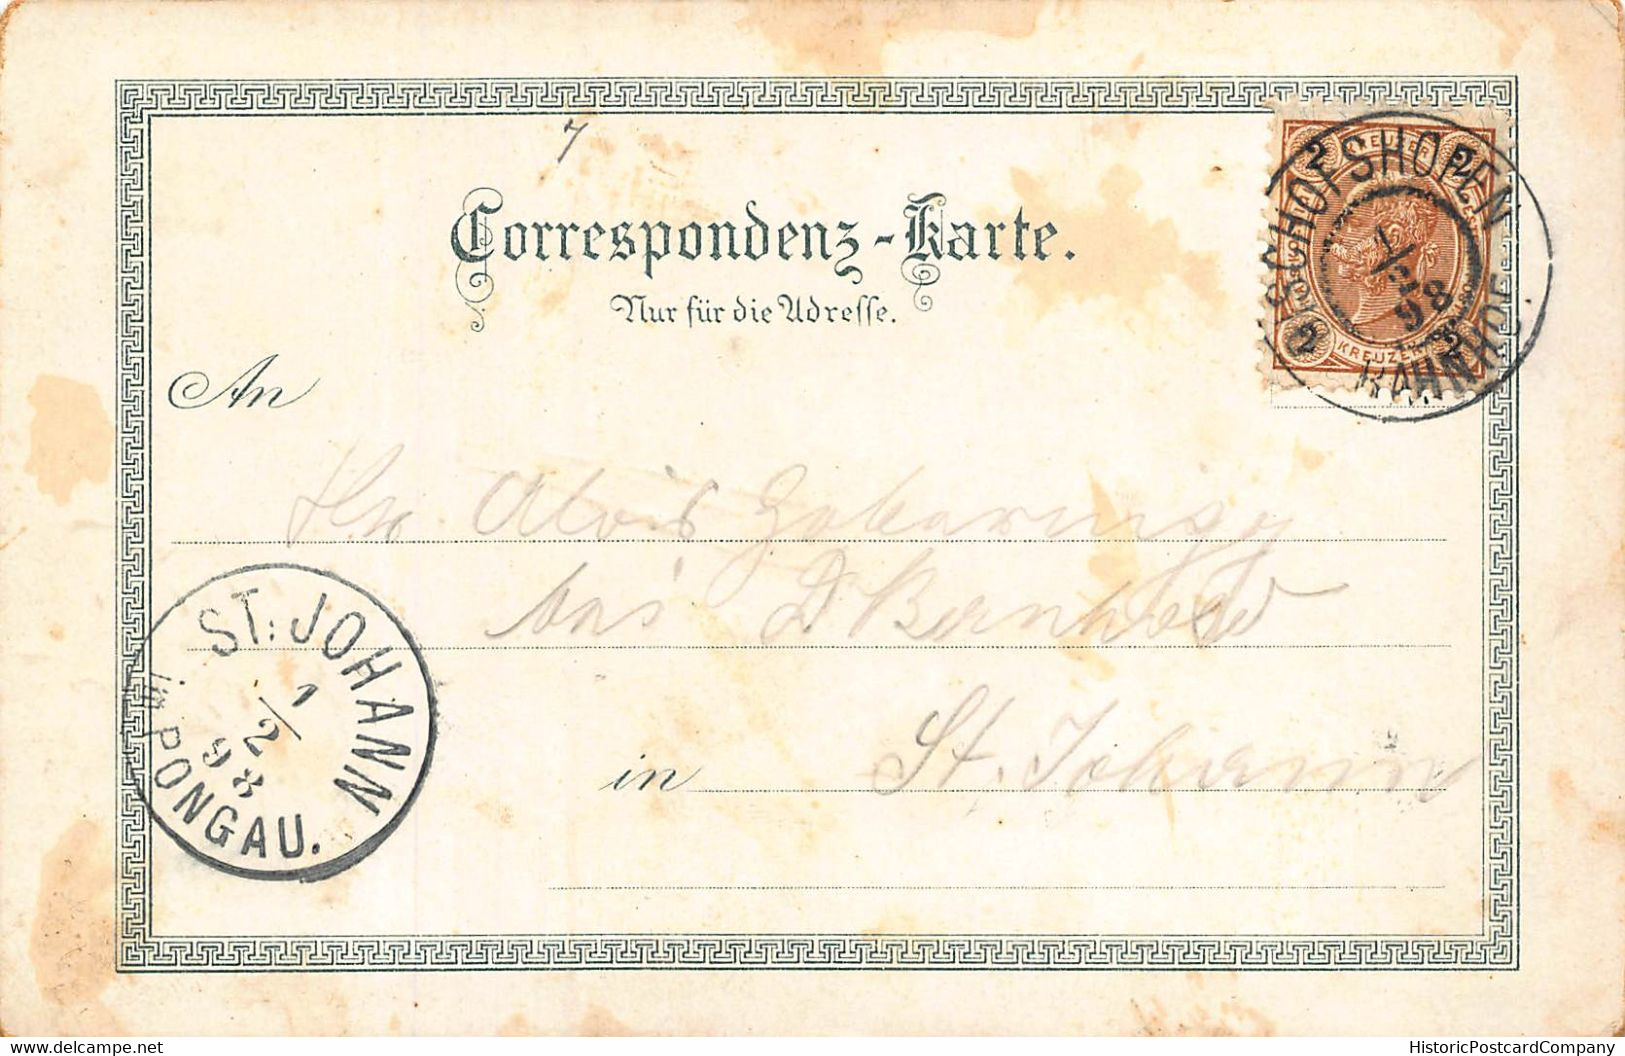 7
Correspondenz-Karte.
Nur für die Adresse.
2 2
KREUZER
2 2
BISCHOFSHOFEN
1/2
98
BAHNHOF
An
Alois
D
in St. Johann
ST. JOHANN
1/2
98
im PONGAU.
delcampe.net
HistoricPostcardCompany